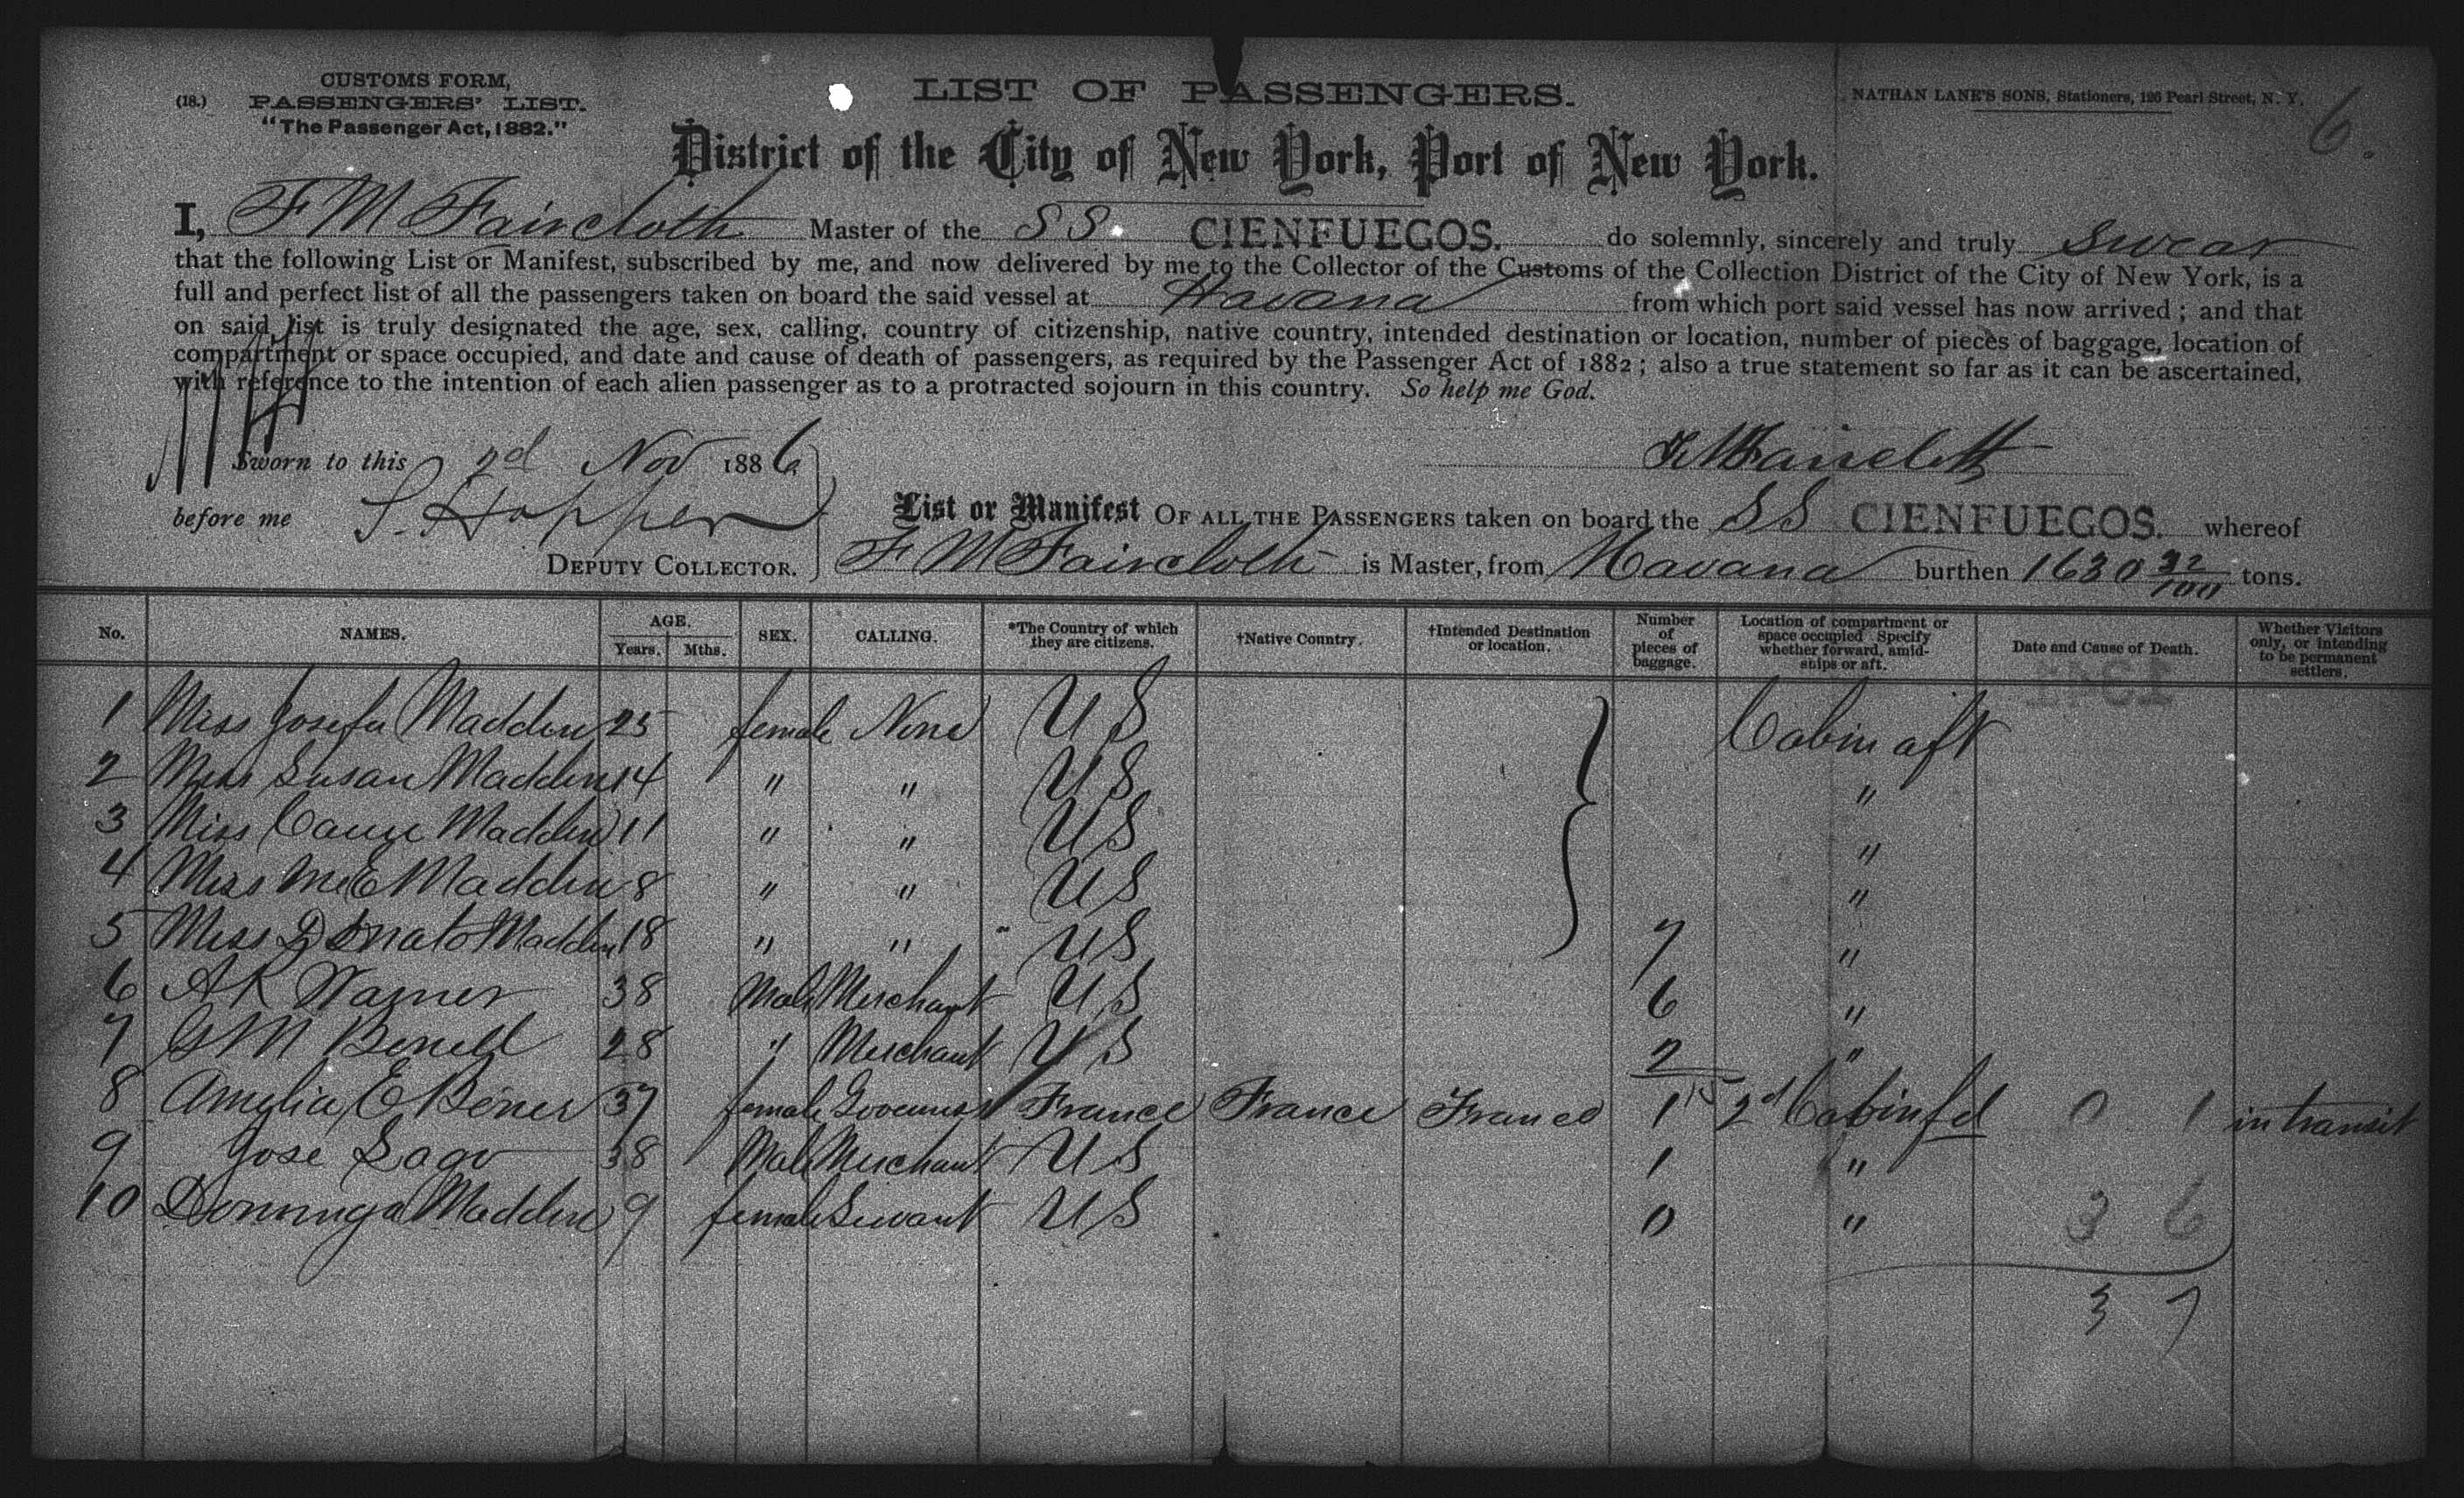 (18.)
CUSTOMS FORM,
PASSENGERS' LIST.
"The Passenger Act, 1882."
LIST OF PASSENGERS.
NATHAN LANE'S SONS, Stationers, 126 Pearl Street, N. Y.
6.
District of the City of New York, Port of New York.
I, F M Faircloth Master of the SS. CIENFUEGOS. do solemnly, sincerely and truly swear
that the following List or Manifest, subscribed by me, and now delivered by me to the Collector of the Customs of the Collection District of the City of New York, is a
full and perfect list of all the passengers taken on board the said vessel at Havana from which port said vessel has now arrived; and that
on said list is truly designated the age, sex, calling, country of citizenship, native country, intended destination or location, number of pieces of baggage, location of
compartment or space occupied, and date and cause of death of passengers, as required by the Passenger Act of 1882; also a true statement so far as it can be ascertained,
with reference to the intention of each alien passenger as to a protracted sojourn in this country. So help me God.
Sworn to this 2d Nov 1886 F M Faircloth
before me S. Hopper
DEPUTY COLLECTOR.
List or Manifest OF ALL THE PASSENGERS taken on board the SS CIENFUEGOS. whereof
F M Faircloth is Master, from Havana burthen 1630 32/100 tons.
No. NAMES. AGE. Years. Mths. SEX. CALLING. *The Country of which they are citizens. †Native Country. †Intended Destination or location. Number of pieces of baggage. Location of compartment or space occupied Specify whether forward, amidships or aft. Date and Cause of Death. Whether Visitors only, or intending to be permanent settlers.
1 Miss Josefa Madden 25 female None US Cabin aft
2 Miss Susan Madden 14 " " US "
3 Miss Madden 11 " " US "
4 Miss M E Madden 8 " " US "
5 Miss Donato Madden 18 " " US 7 "
6 A K Warner 38 Male Merchant US 6 "
7 M 28 " Merchant US 2 "
8 Amelia E 37 female Governess France France France 1 15 2d Cabin fd 0 1 in transit
9 Jose Lago 38 Male Merchant US 1 "
10 Dominga Madden 9 female Servant US 0 " 3 6
3 7